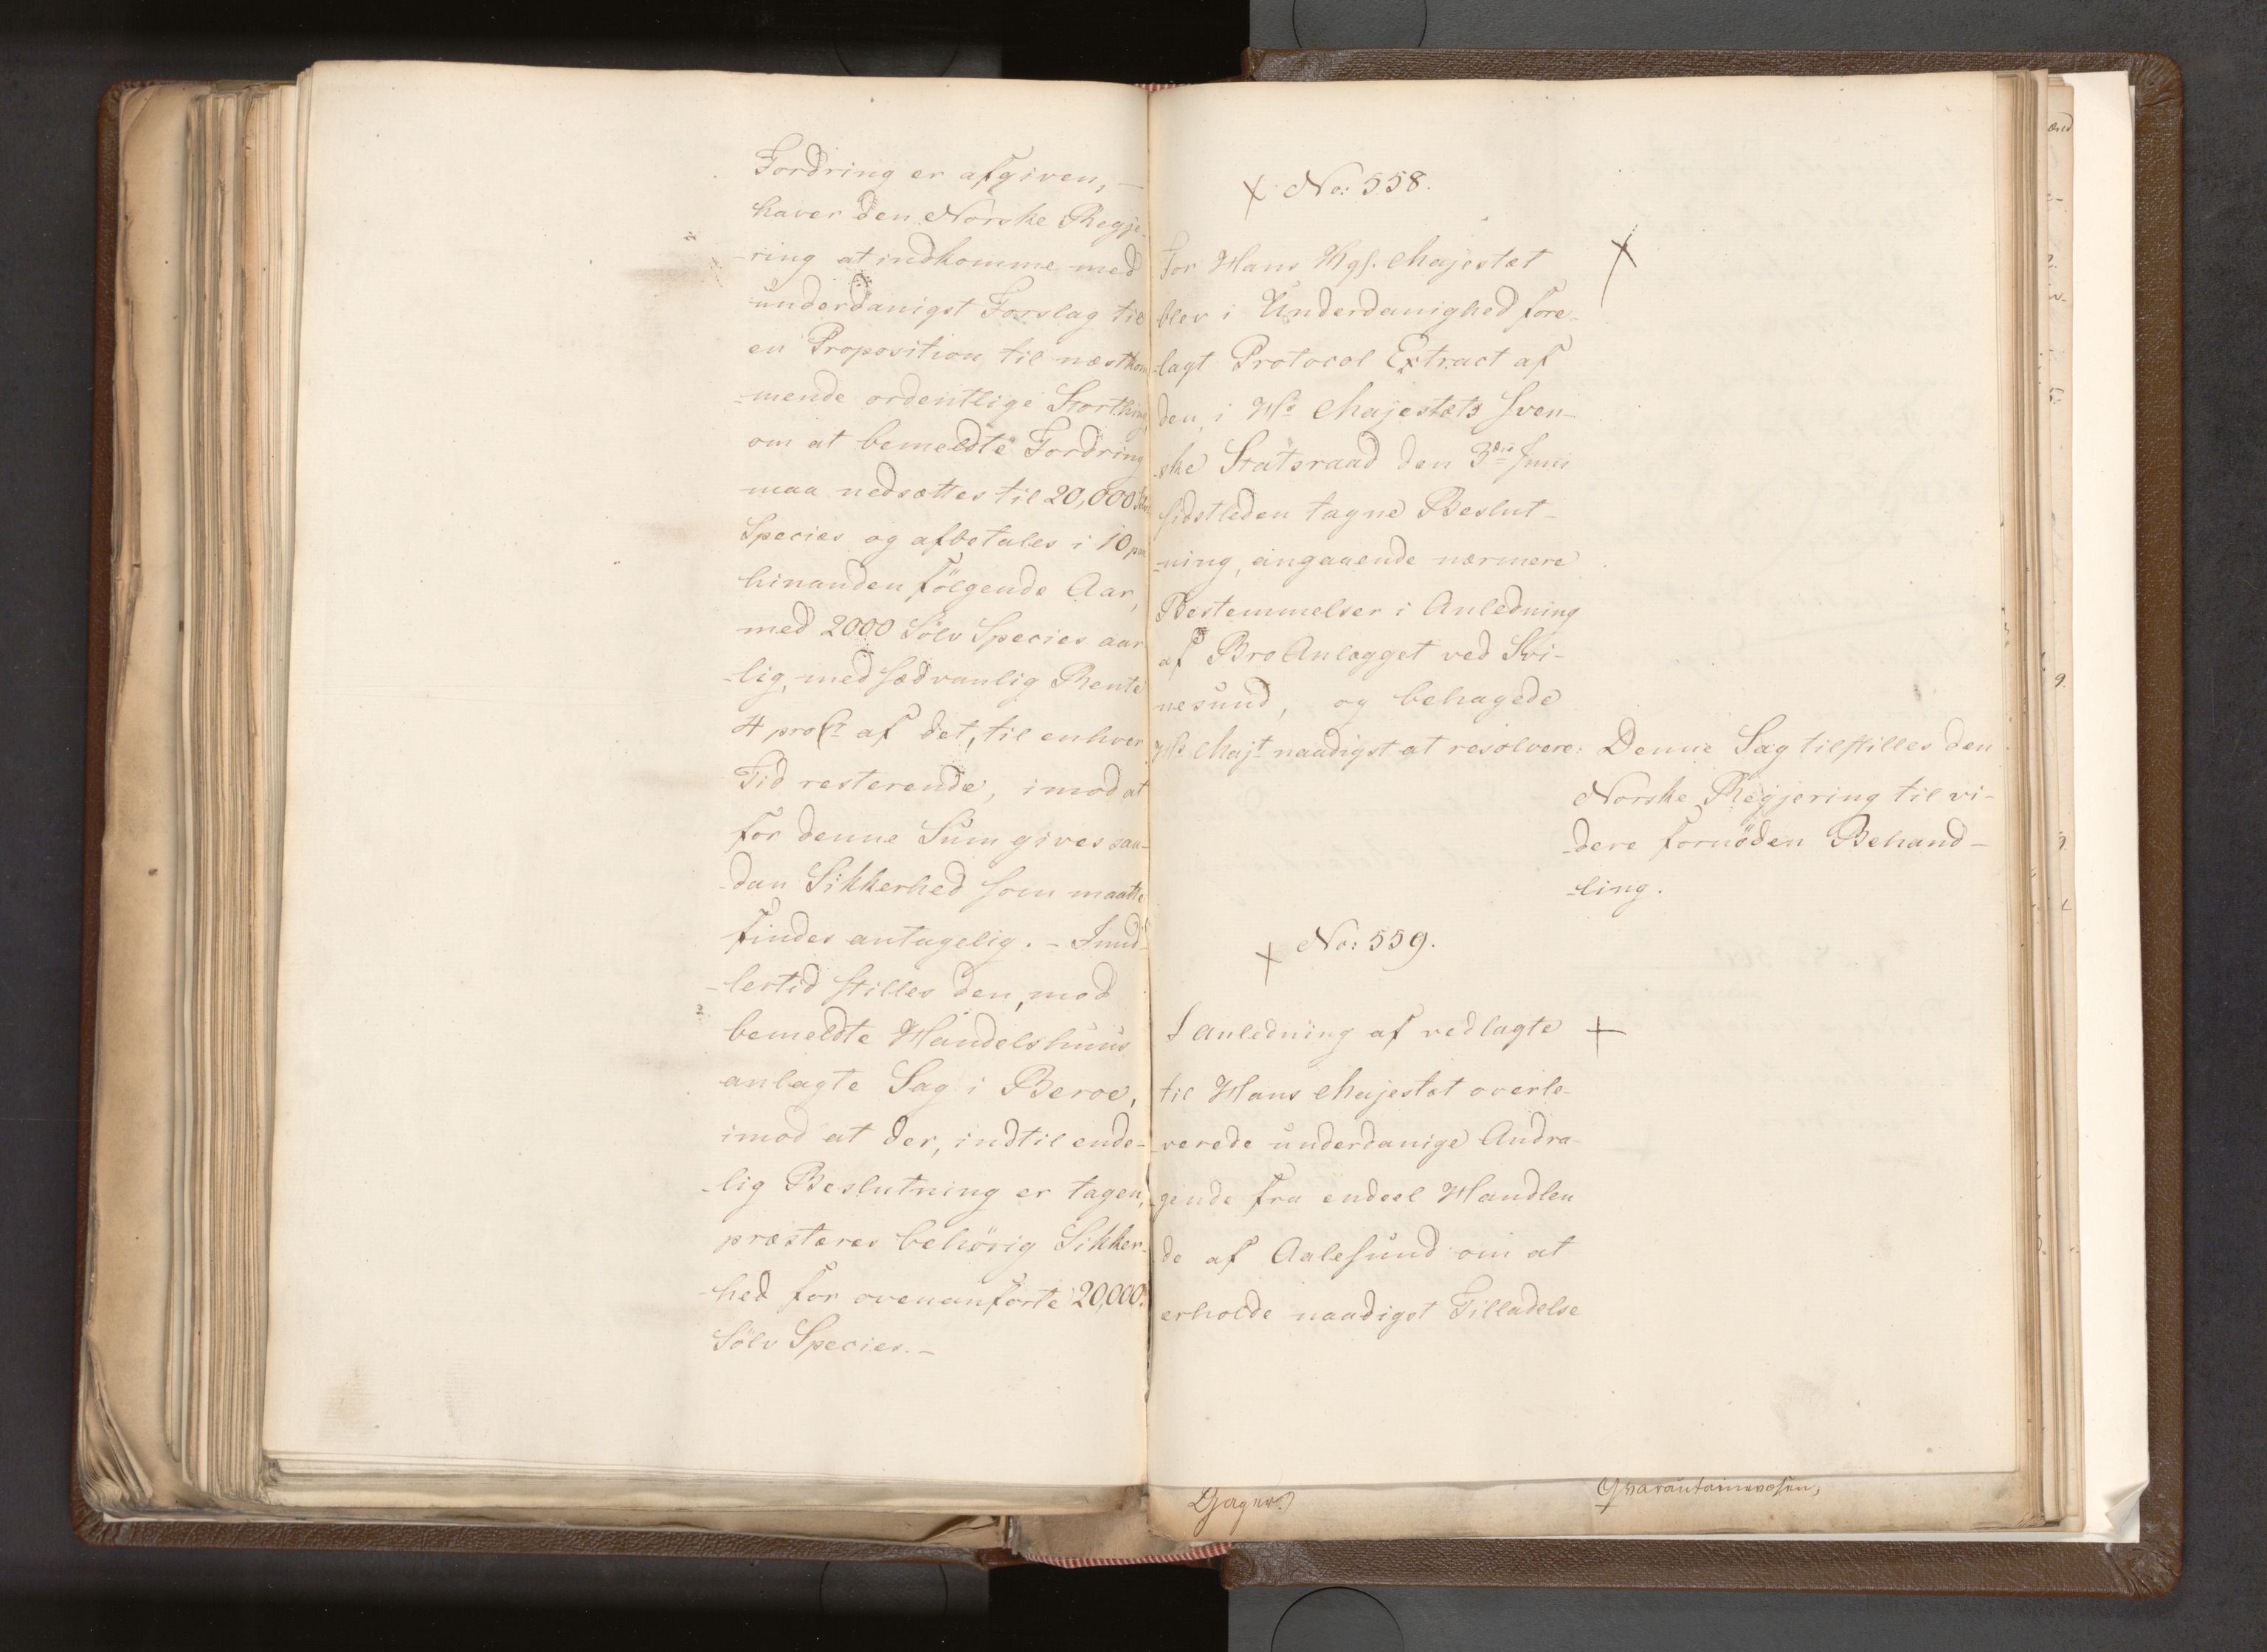 Fordring er afgiven, —
haver den Norske Regje-
-ring at indkomme med
underdanigst Forslag til
en Proposition til næstkom
-mende ordentlige Storthing,
om at bemeldte Fordring
maa nedsættes til 20,000
Species og afbetales i 10 paa
hinanden følgende Aar,
med 2000 Sölv Species aar
-lig, med sædvanlig Rente
4 proCt af det, til enhver
Tid resterende, imod at
for denne Sum gives saa-
-dan Sikkerhed som maatte
findes antagelig. – Imid-
-lertid stilles den, mod
bemeldte Handelshuus
anlagte Sag i Beroe,
imod at der, indtil ende-
-lig Beslutning er tagen,
præsteres behörig Sikker-
-hed for ovenanförte 20,000.
Sölv Species. –
No: 558.
For Hans Kgl. Majestæt
blev i Underdanighed fore-
-lagt Protocol Extract af
den, i Hs Majestæts Sven-
-ske Statsraad den 3die Juni
sidstleden tagne Beslut-
-ning, angaaende nærmere
Bestemmelser i Anledning
af Bro Anlægget ved Svi-
nesund, og behagede
Hs Majt naadigst at resolvere: Denne Sag tilstilles den
Norske Regjering til vi-
-dere fornöden Behand-
-ling.
No: 559.
I Anledning af vedlagte
til Hans Majestæt overle-
-verede underdanige Andra-
-gende fra endeel Handlen
de af Aalesund om at
erholde naadigst Tilladelse
Gager.
Qvarantainevæsen,